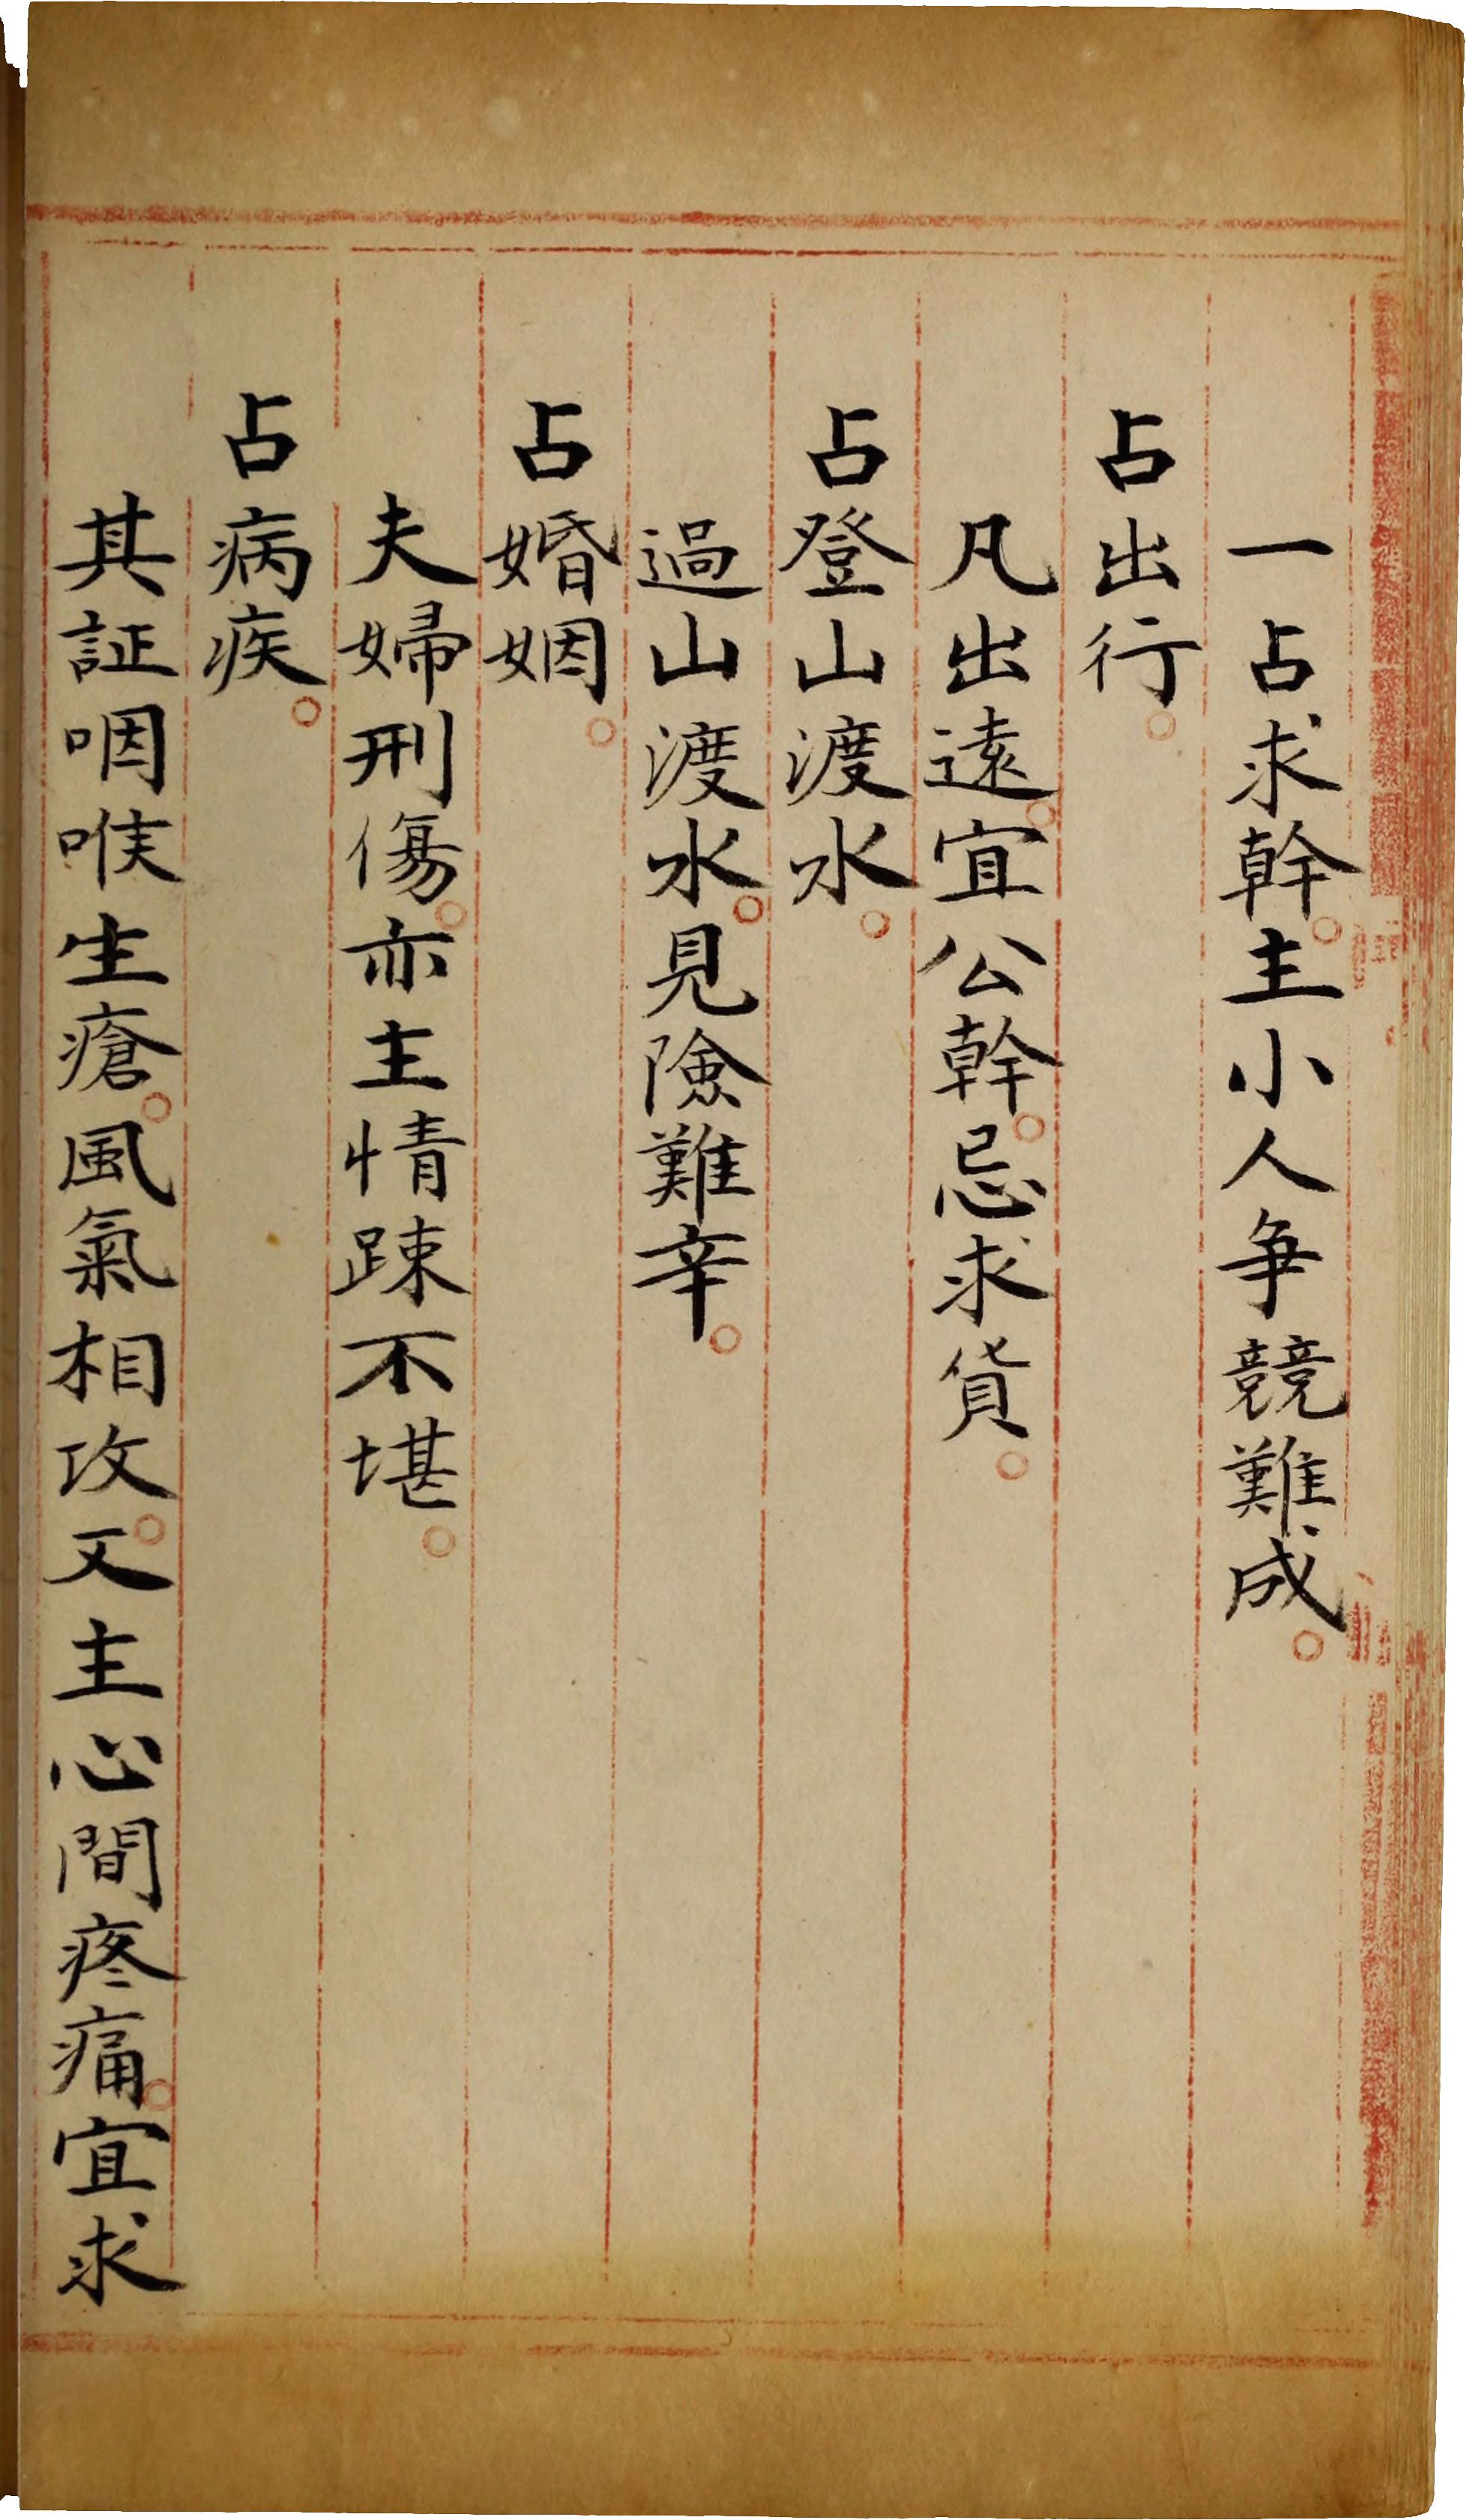 一占求幹。主小人爭競難成。
占出行。
凡出遠。宜公幹。忌求貨。
占登山渡水。
過山渡水。見險難辛。
占婚姻。
夫婦刑傷。亦主情踈不堪。
占病疾。
其証咽喉生瘡。風氣相攻。又主心間疼痛。宜求